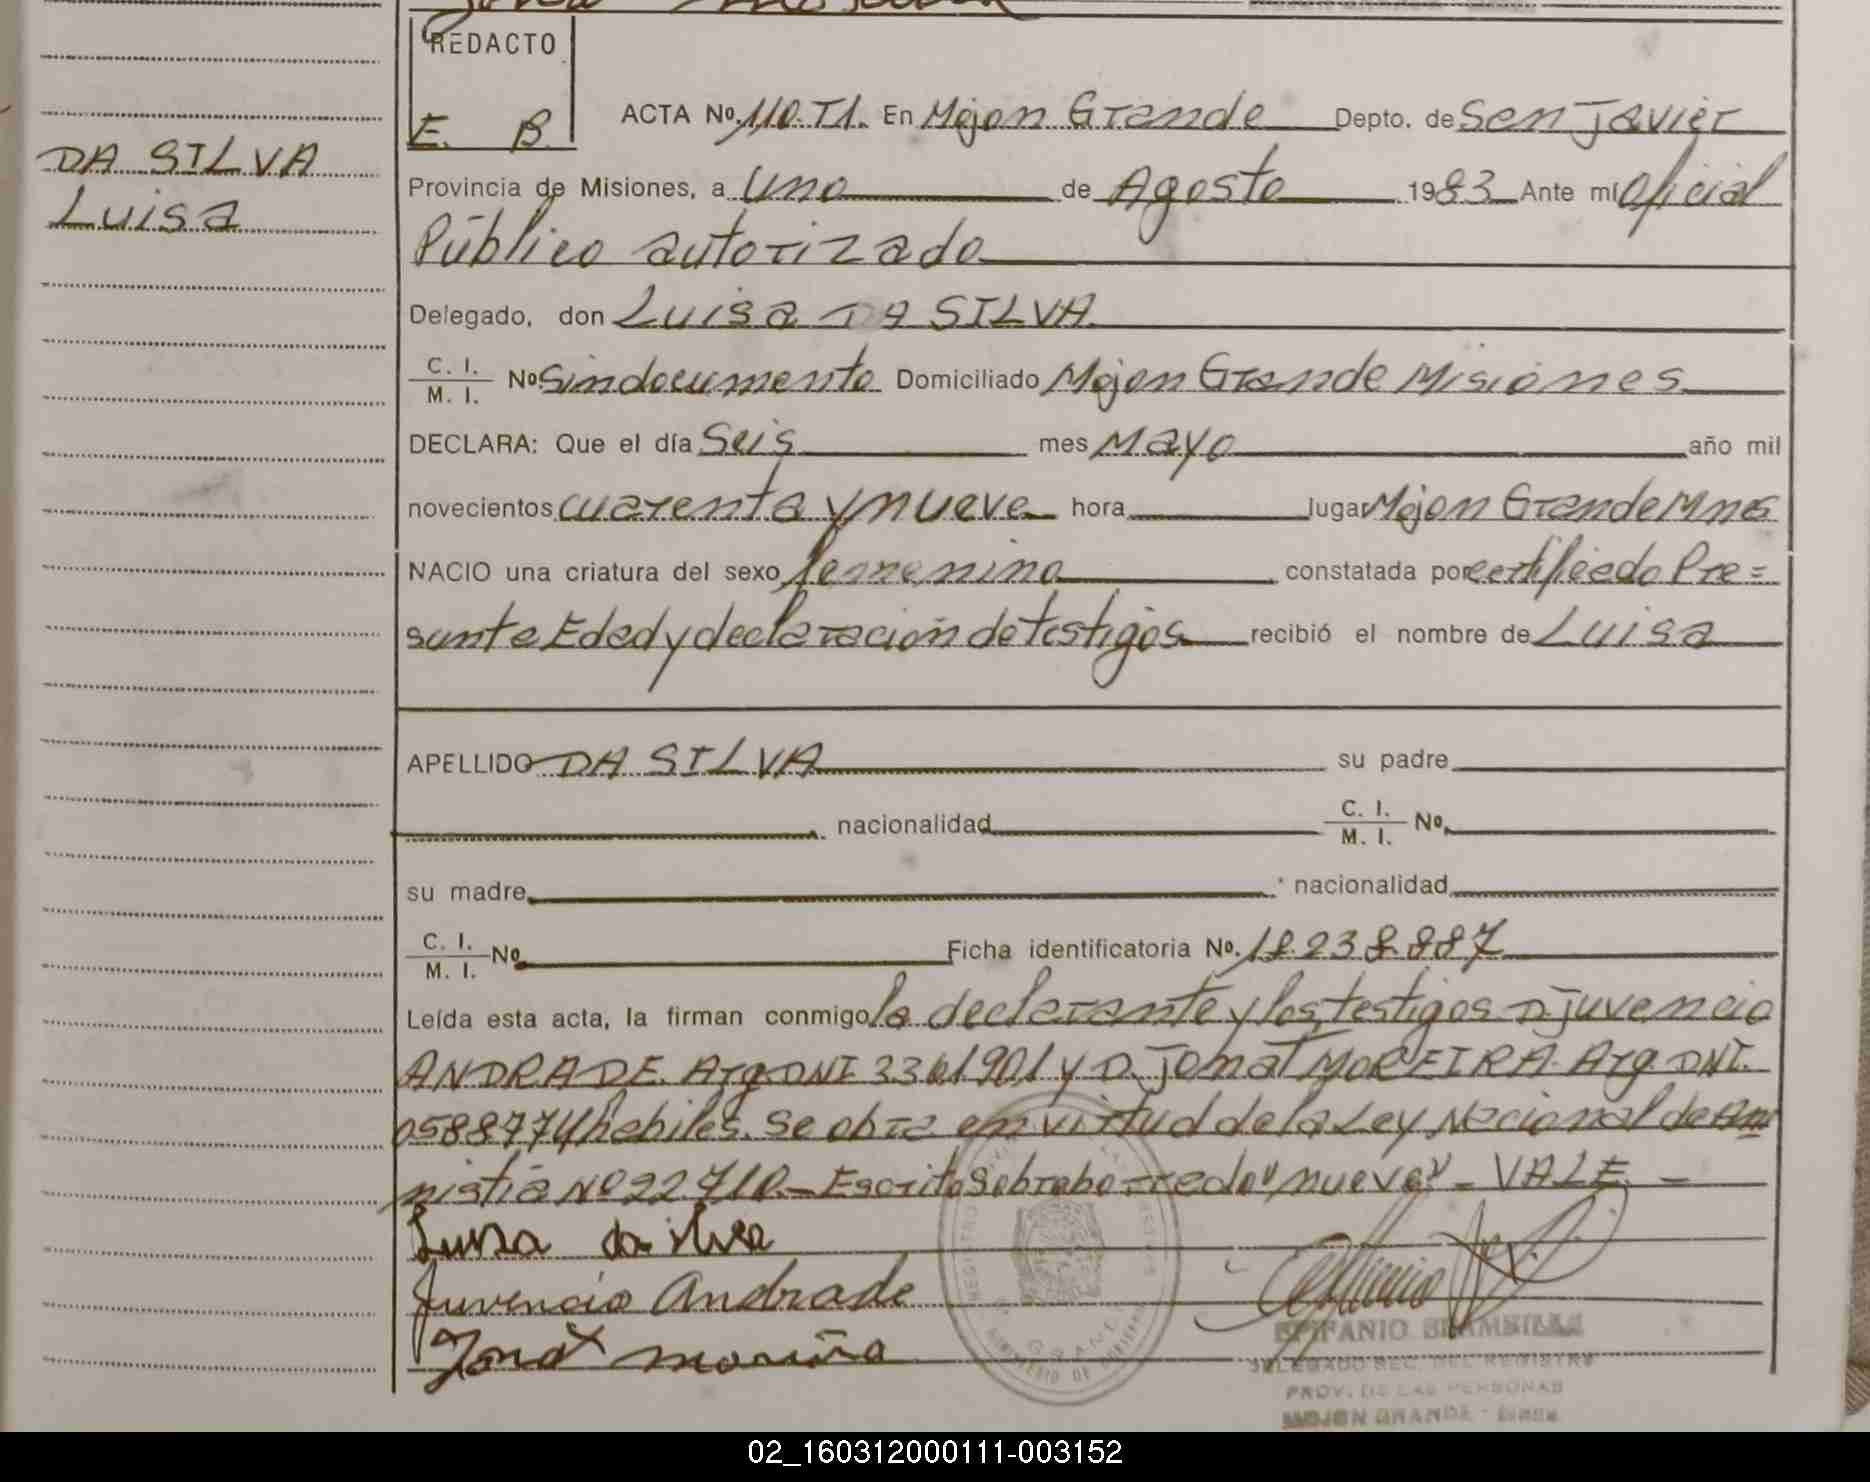 REDACTO
E. B.
ACTA No. 110. T1. En Mojon Grande Depto. de San Javier
DA SILVA
Luisa
Provincia de Misiones, a Uno de Agosto 1983 Ante mí Oficial
Público autorizado
Delegado, don Luisa DA SILVA
C. I. / M. I. No Sin documento Domiciliado Mojon Grande Misiones
DECLARA: Que el día Seis mes Mayo año mil
novecientos cuarenta y nueve hora lugar Mojon Grande Mnes
NACIO una criatura del sexo femenino constatada por certificado Pre=
sunta Edad y declaración de testigos recibió el nombre de Luisa
APELLIDO DA SILVA su padre
nacionalidad C. I. / M. I. No.
su madre nacionalidad
C. I. / M. I. No Ficha identificatoria No. 18.238.887
Leída esta acta, la firman conmigo la declarante y los testigos D. Juvencio
ANDRADE. Arg. DNI 3361901 y D. Jomat MOREIRA. Arg. DNI.
0588774 habiles. Se obra en virtud de la Ley Nacional de Am
nistia Nº 22.710.- Escrito sobraborredo "nueve" - VALE -
Luisa da silva
Juvencio Andrade
EPIFANIO
DELEGADO SEC. DEL REGISTRO
PROV. DE LAS PERSONAS
MOJON GRANDE -
02_160312000111-003152